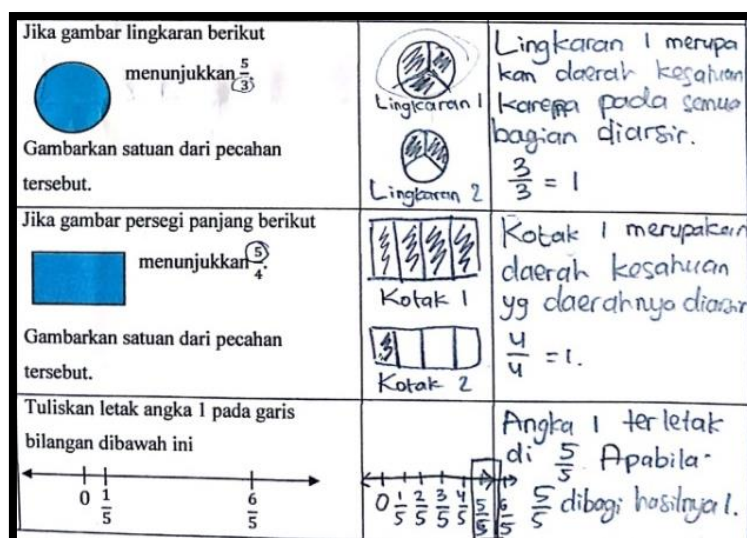 Jika gambar lingkaran berikut
menunjukkan 5/3.
Gambarkan satuan dari pecahan
tersebut.
Lingkaran 1
Lingkaran 2
Lingkaran 1 merupa
kan daerah kesatuan
karena pada semua
bagian diarsir.
3/3 = 1
Jika gambar persegi panjang berikut
menunjukkan 5/4.
Gambarkan satuan dari pecahan
tersebut.
Kotak 1
Kotak 2
Kotak 1 merupakan
daerah kesatuan
yg daerahnya diarsir
4/4 = 1.
Tuliskan letak angka 1 pada garis
bilangan dibawah ini
0 1/5 6/5
0 1/5 2/5 3/5 4/5 5/5 6/5
Angka 1 terletak
di 5/5. Apabila
5/5 dibagi hasilnya 1.